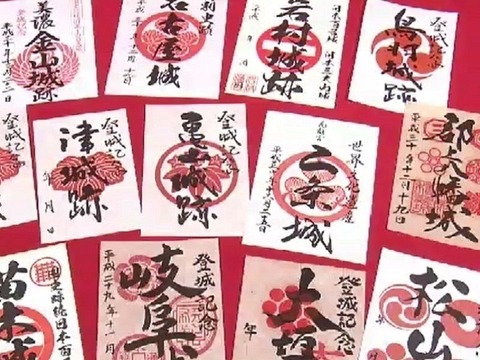 美濃
金山城跡
名古屋城
日本三大山城
岩村城跡
登城記念
鳥羽城跡
登城記念
登城記念
津城跡
年 月 日
登城記念
亀山城跡
世界文化遺産
二条城
郡上八幡城
平成三十年十二月十九日
国史跡 続日本百
苗木
登城記念
岐阜
平成二十九年十一月
登城記念
大垣
年
松山